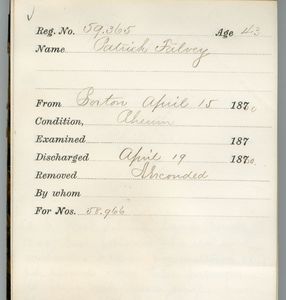 Reg. No. 59.365 Age 43
Name Patrick
From Boston April 15 1870
Condition,
Examined 187
Discharged April 19 1870
Removed Absconded
By whom
For Nos. 58.966